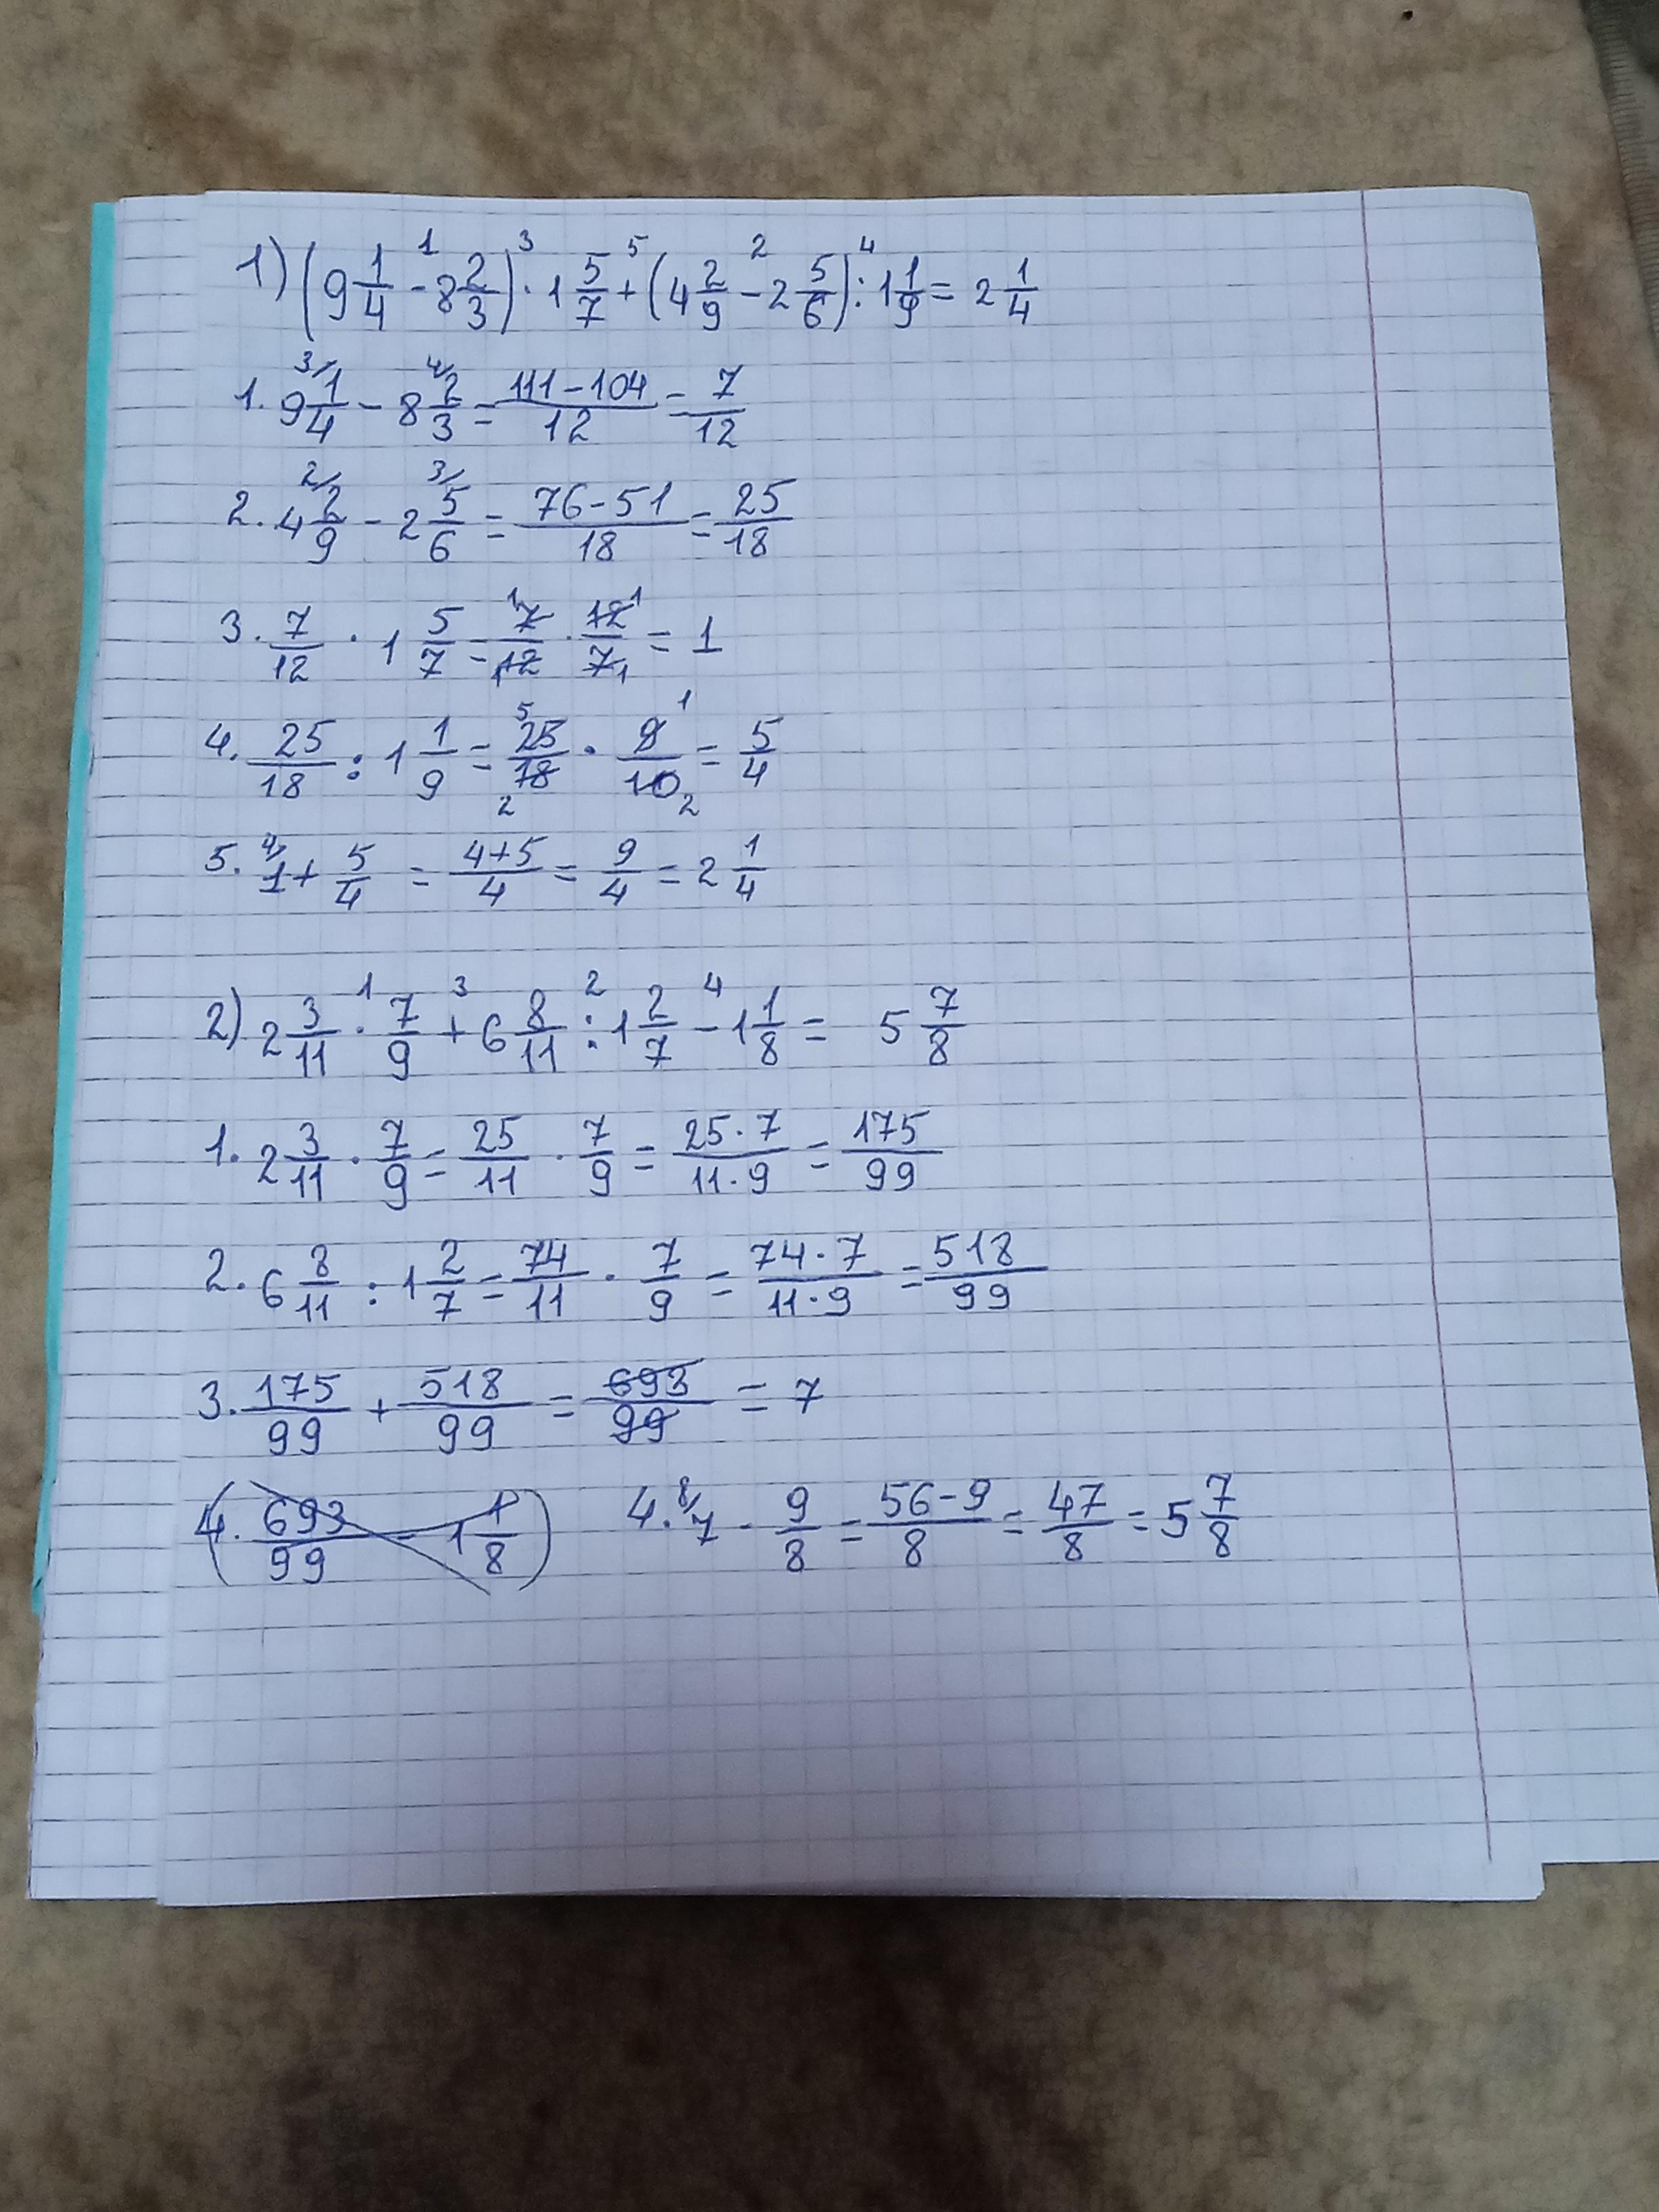 1) (9 1/4 - 8 2/3) · 1 5/7 + (4 2/9 - 2 5/6) : 1 1/9 = 2 1/4
1. 9 1/4 - 8 2/3 = (111 - 104)/12 = 7/12
2. 4 2/9 - 2 5/6 = (76 - 51)/18 = 25/18
3. 7/12 · 1 5/7 = 7/12 · 12/7 = 1
4. 25/18 : 1 1/9 = 25/18 · 9/10 = 5/4
5. 1 + 5/4 = (4+5)/4 = 9/4 = 2 1/4
2) 2 3/11 · 7/9 + 6 8/11 : 1 2/7 - 1 1/8 = 5 7/8
1. 2 3/11 · 7/9 = 25/11 · 7/9 = (25·7)/(11·9) = 175/99
2. 6 8/11 : 1 2/7 = 74/11 · 7/9 = (74·7)/(11·9) = 518/99
3. 175/99 + 518/99 = 693/99 = 7
(4. 693/99 - 1 1/8) 4. 7 - 9/8 = (56 - 9)/8 = 47/8 = 5 7/8